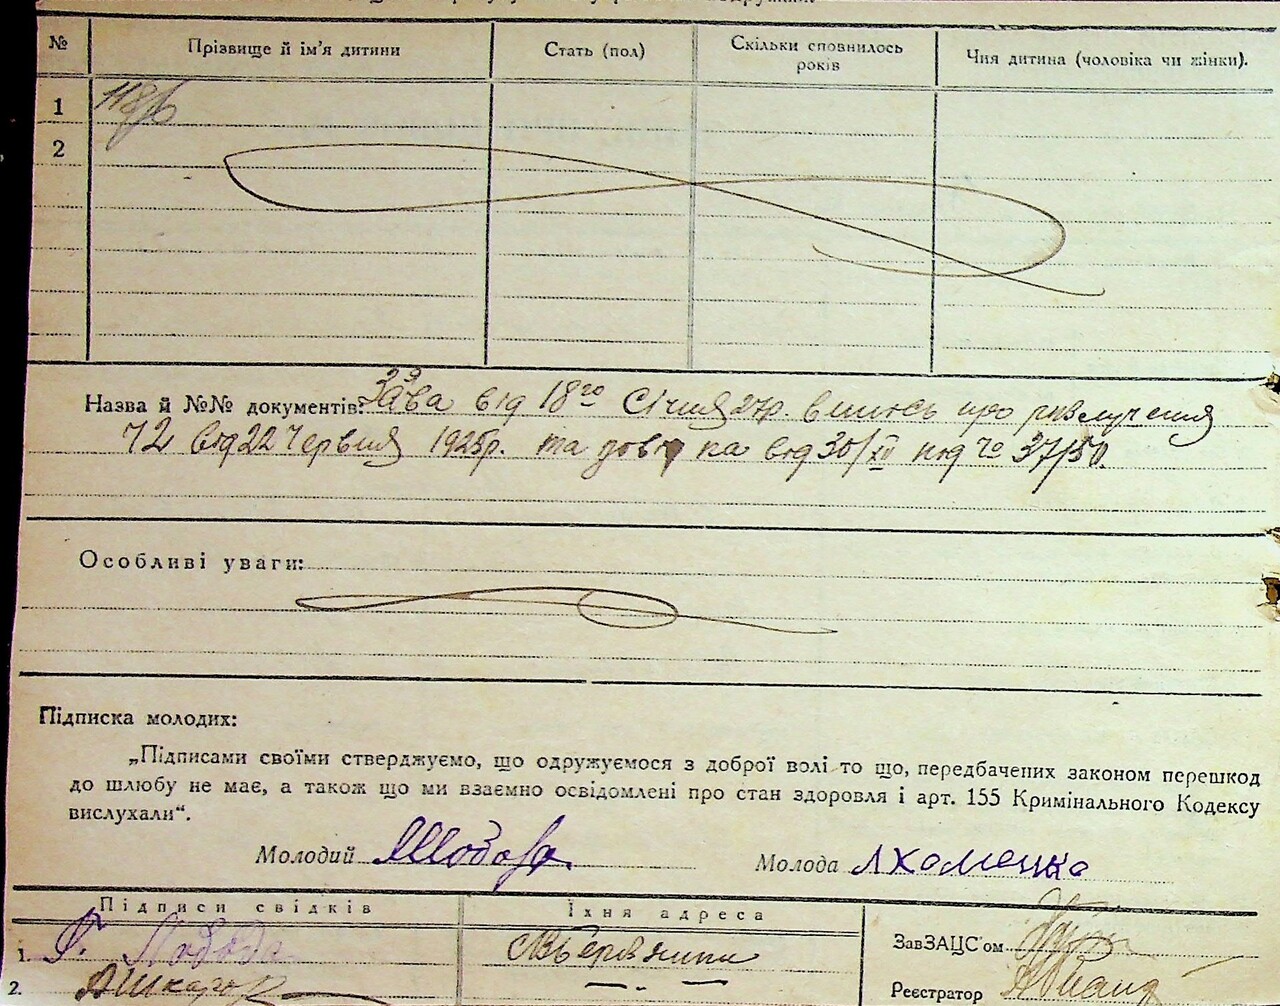 № Прізвище й ім'я дитини Стать (пол) Скільки сповнилось років Чия дитина (чоловіка чи жінки).
1
2
Назва й №№ документів: від 18го Січня 27р. про розлучення
72 від 22 Червня 1925р. та від 30/XII під № 37/50.
Особливі уваги:
Підписка молодих:
„Підписами своїми стверджуємо, що одружуємося з доброї волі то що, передбачених законом перешкод
до шлюбу не має, а також що ми взаємно освідомлені про стан здоровля і арт. 155 Кримінального Кодексу
вислухали“.
Молодий Молода Хоменко
Підписи свідків Їхня адреса
1. Лобода ЗавЗАЦС'ом
2. Реєстратор